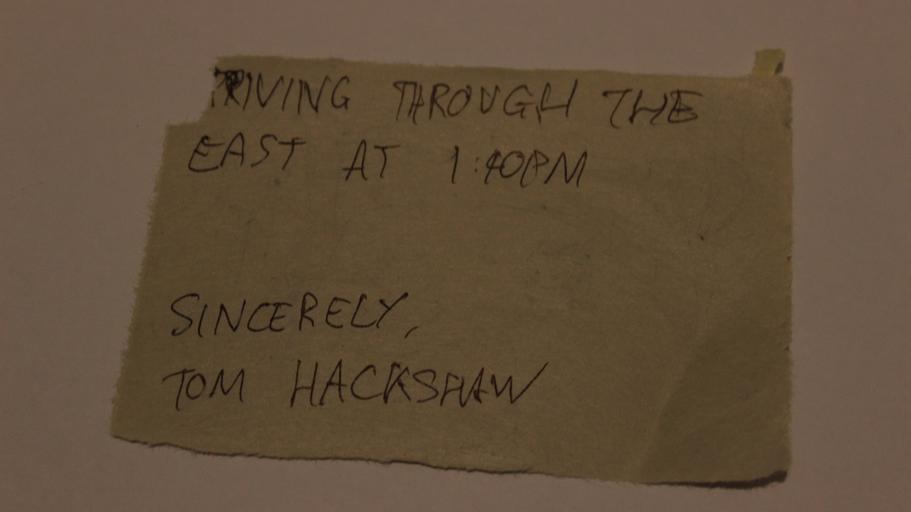 THROUGH THE
EAST AT 1:40PM
SINCERELY,
TOM HACKSHAW